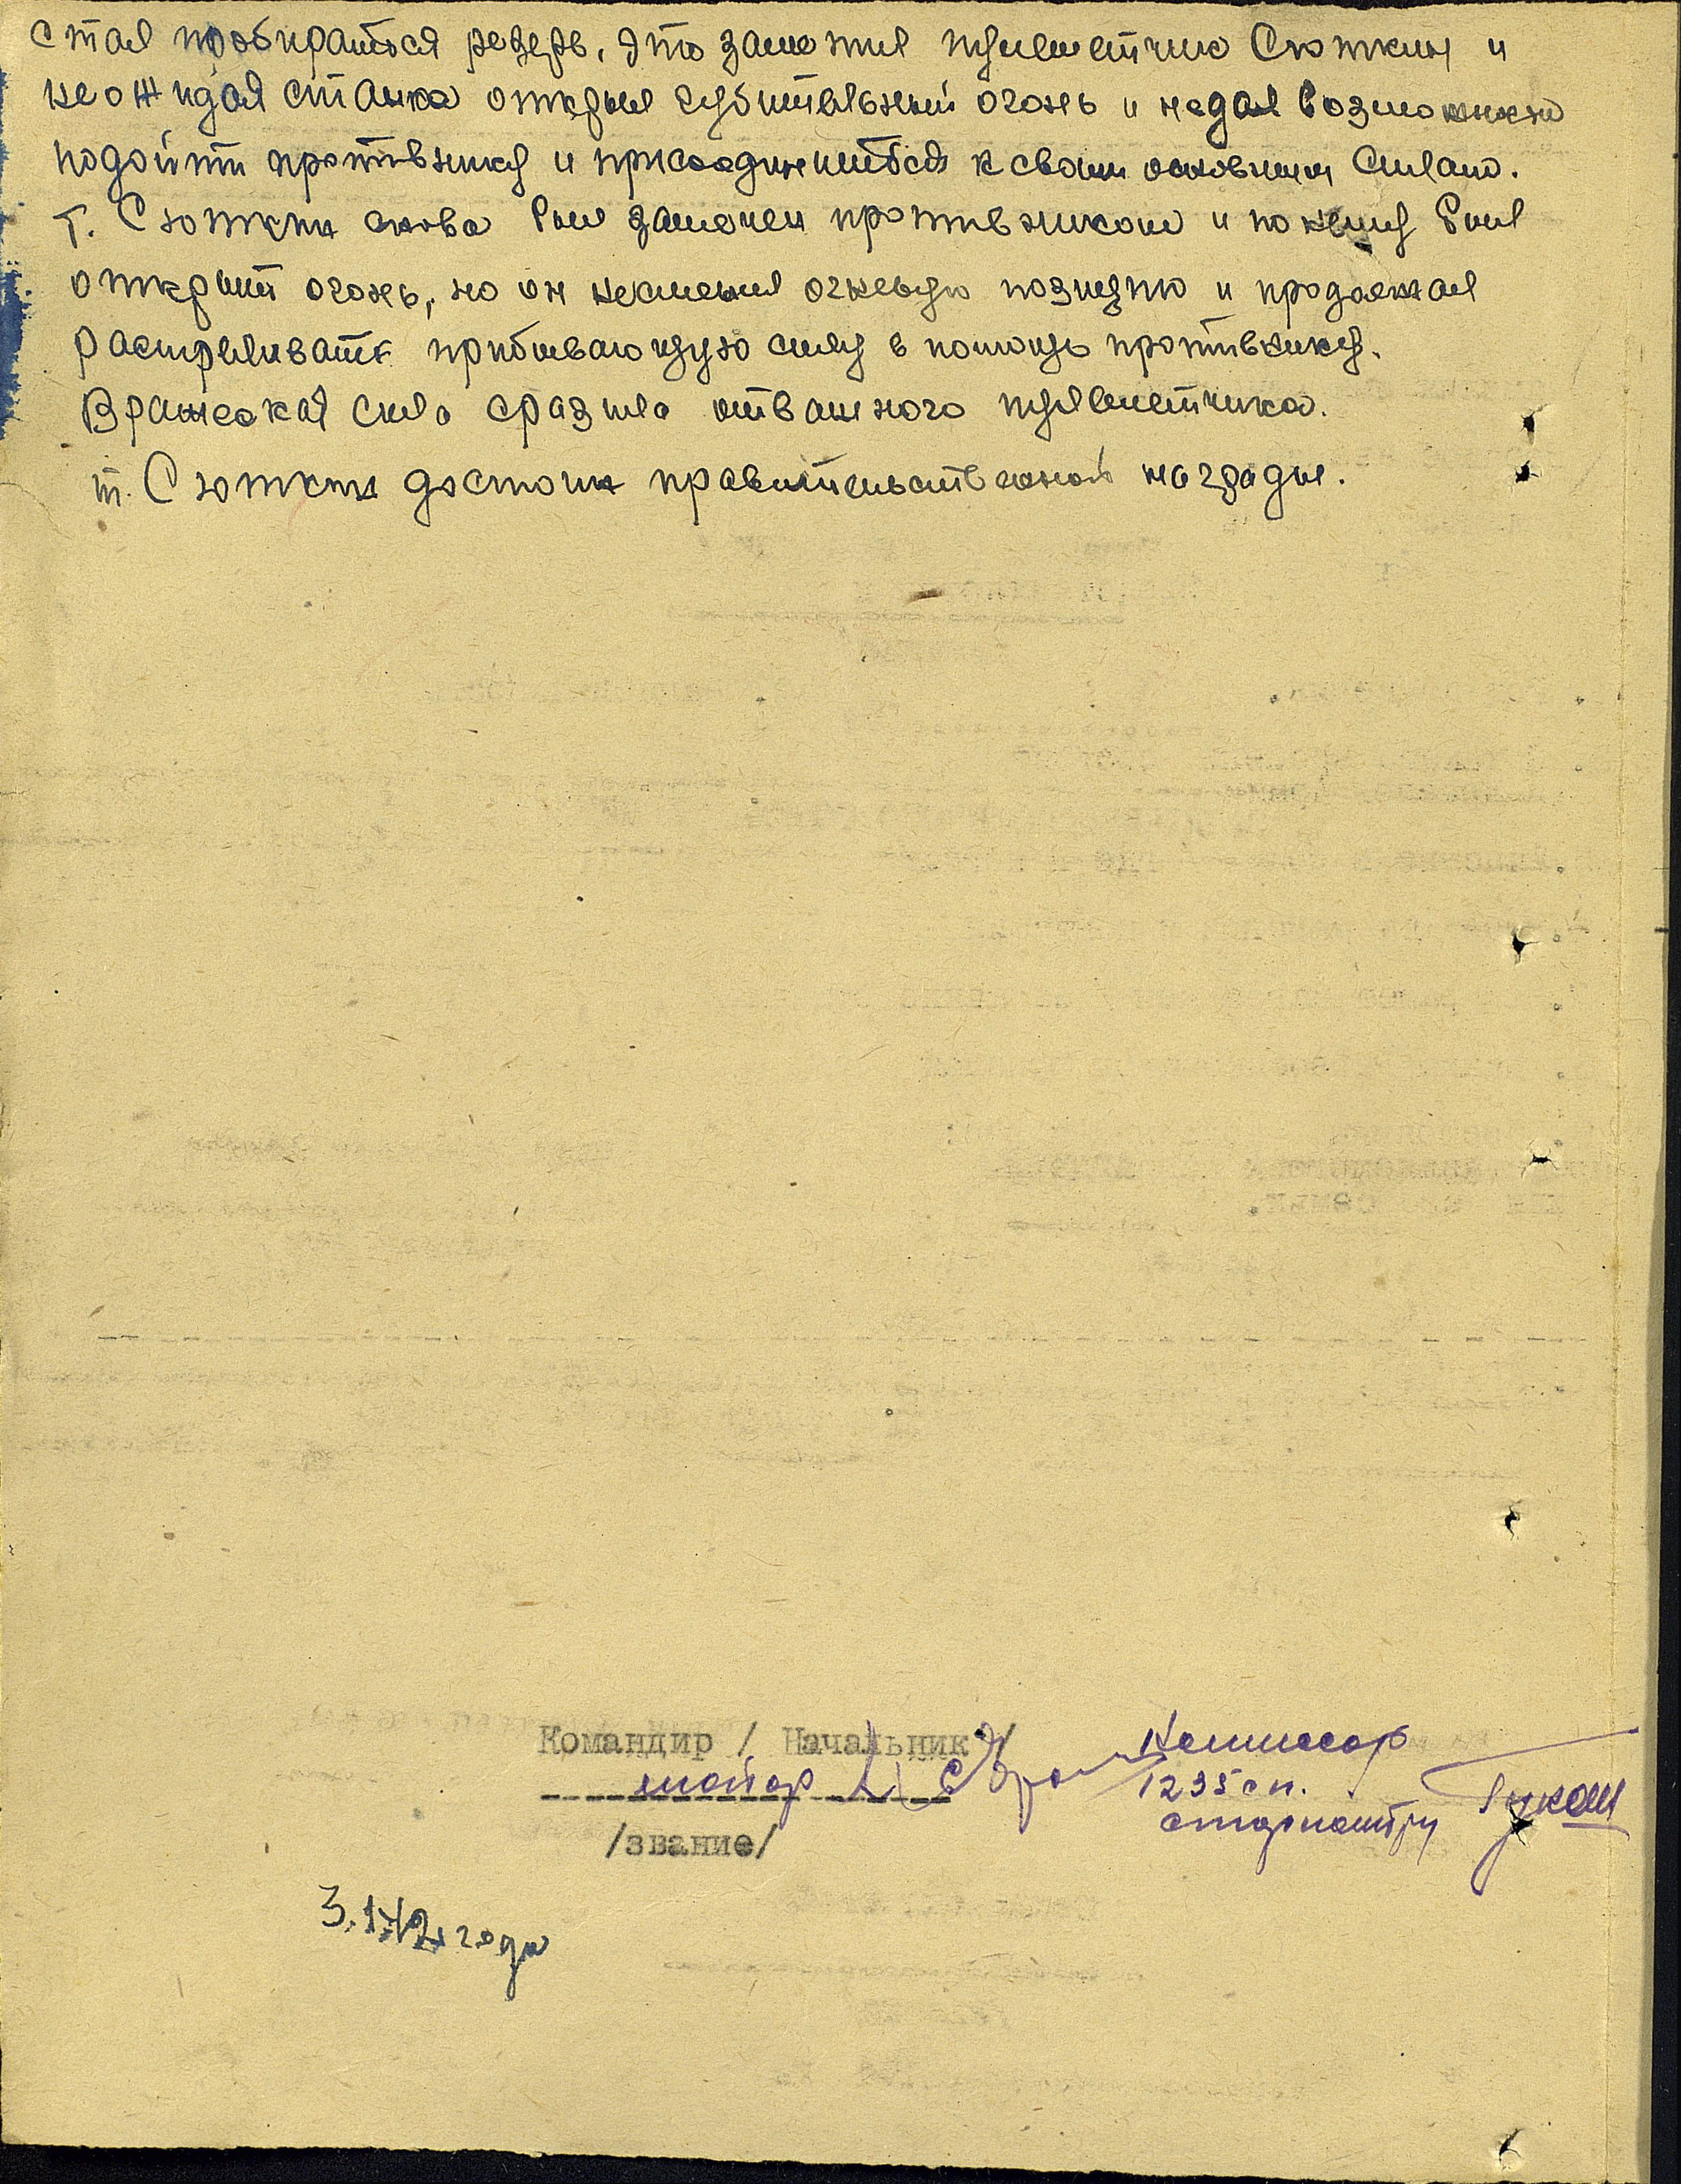 стал пробираться резерв, это заметил пулеметчик Сюткин и
неожидая станка открыл губительный огонь и недал возможно
подойти противнику и присоединиться к своим основным силам.
т. Сюткин снова был замечен противником и по нему был
открыт огонь, но он несменил огневую позицию и продолжал
растреливать прибывающую силу в помощь противнику.
Вражеская сила сразила отважного пулеметчика.
т. Сюткин достоин правительственной награды.
Командир / Начальник /
майор
/звание/
Комиссар
1235 сп.
3.1.42 года